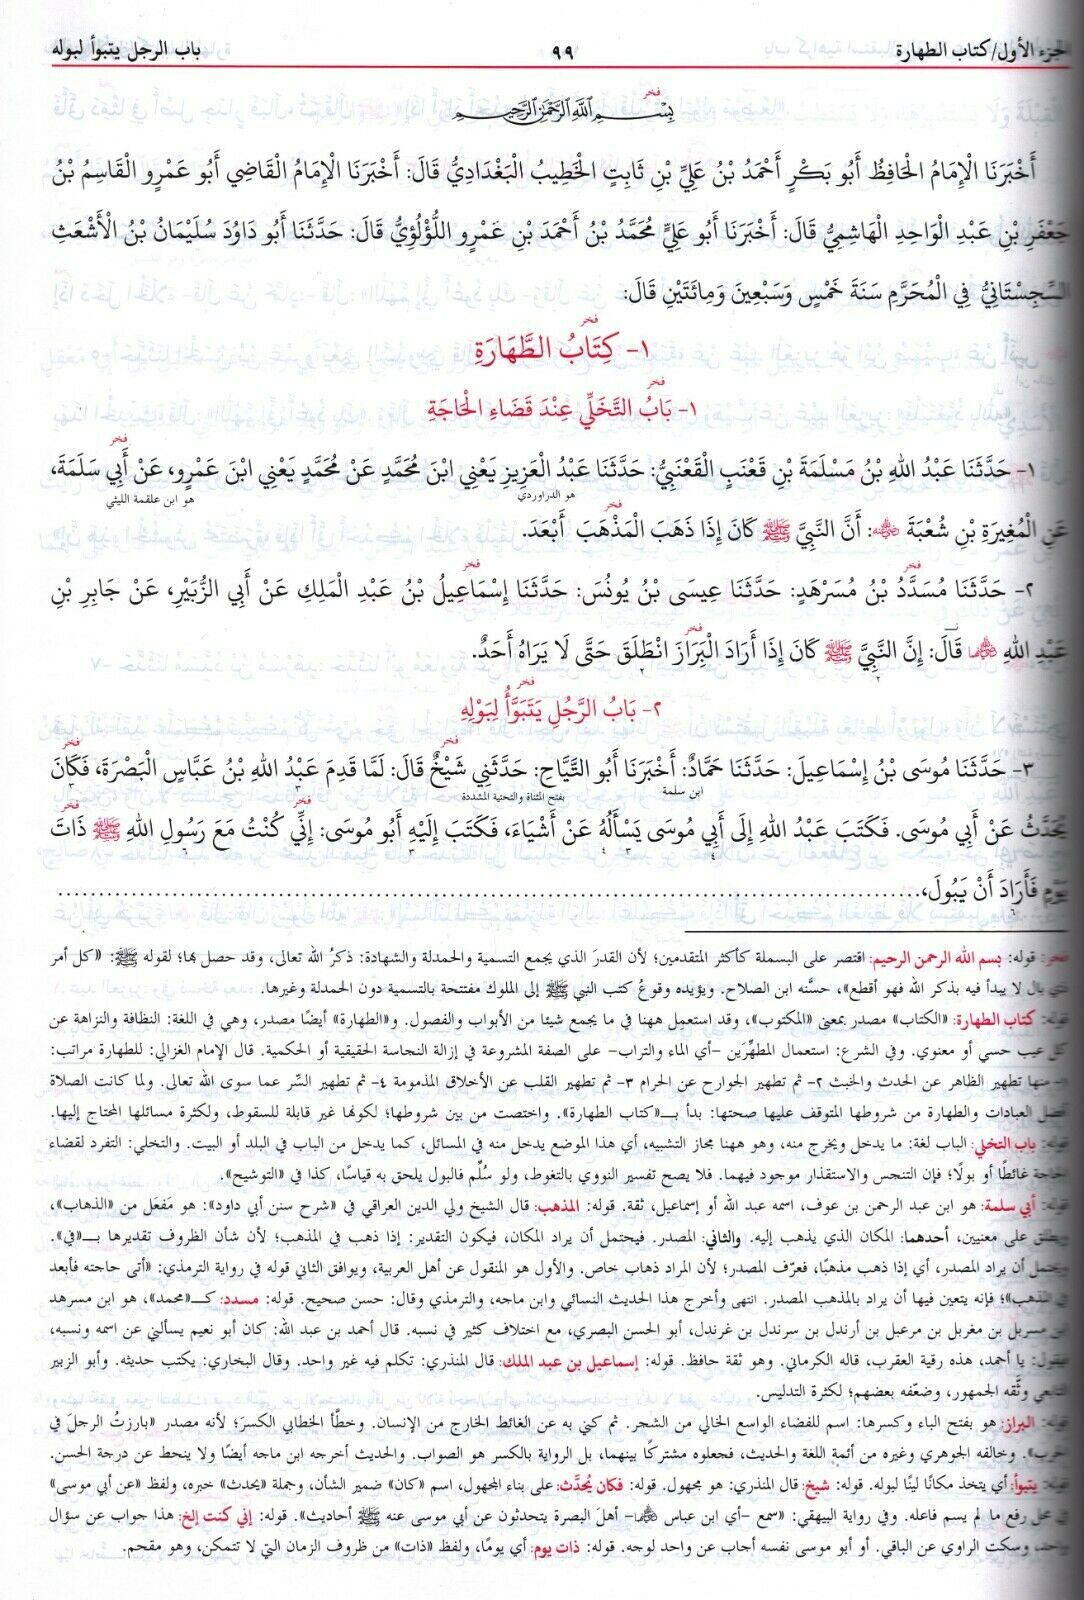 الجزء الأول/كتاب الطهارة ٩٩ باب الرجل يتبوأ لبوله
فخر
بِسْمِ اللهِ الرَّحْمٰنِ الرَّحِيْمِ
أَخْبَرَنَا الْإِمَامُ الْحَافِظُ أَبُو بَكْرٍ أَحْمَدُ بْنُ عَلِيِّ بْنِ ثَابِتٍ الْخَطِيبُ الْبَغْدَادِيُّ قَالَ: أَخْبَرَنَا الْإِمَامُ الْقَاضِي أَبُو عَمْرٍو الْقَاسِمُ بْنُ
جَعْفَرِ بْنِ عَبْدِ الْوَاحِدِ الْهَاشِمِيُّ قَالَ: أَخْبَرَنَا أَبُو عَلِيٍّ مُحَمَّدُ بْنُ أَحْمَدَ بْنِ عَمْرٍو اللُّؤْلُؤِيُّ قَالَ: حَدَّثَنَا أَبُو دَاوُدَ سُلَيْمَانُ بْنُ الْأَشْعَثِ
السِّجِسْتَانِيُّ فِي الْمُحَرَّمِ سَنَةَ خَمْسٍ وَسَبْعِينَ وَمِائَتَيْنِ قَالَ:
فخر
١- كِتَابُ الطَّهَارَةِ
فخر
١- بَابُ التَّخَلِّي عِنْدَ قَضَاءِ الْحَاجَةِ
فخر
١- حَدَّثَنَا عَبْدُ اللهِ بْنُ مَسْلَمَةَ بْنِ قَعْنَبٍ الْقَعْنَبِيُّ: حَدَّثَنَا عَبْدُ الْعَزِيزِ يَعْنِي ابْنَ مُحَمَّدٍ عَنْ مُحَمَّدٍ يَعْنِي ابْنَ عَمْرٍو، عَنْ أَبِي سَلَمَةَ،
هو الدراوردي هو ابن علقمة الليثي
فخر
عَنِ الْمُغِيرَةِ بْنِ شُعْبَةَ ﵁: أَنَّ النَّبِيَّ ﷺ كَانَ إِذَا ذَهَبَ الْمَذْهَبَ أَبْعَدَ.
فخر فخر
٢- حَدَّثَنَا مُسَدَّدُ بْنُ مُسَرْهَدٍ: حَدَّثَنَا عِيسَى بْنُ يُونُسَ: حَدَّثَنَا إِسْمَاعِيلُ بْنُ عَبْدِ الْمَلِكِ عَنْ أَبِي الزُّبَيْرِ، عَنْ جَابِرِ بْنِ
فخر
عَبْدِ اللهِ ﵄ قَالَ: إِنَّ النَّبِيَّ ﷺ كَانَ إِذَا أَرَادَ الْبَرَازَ انْطَلَقَ حَتَّى لَا يَرَاهُ أَحَدٌ.
فخر
٢- بَابُ الرَّجُلِ يَتَبَوَّأُ لِبَوْلِهِ
فخر فخر
٣- حَدَّثَنَا مُوسَى بْنُ إِسْمَاعِيلَ: حَدَّثَنَا حَمَّادٌ: أَخْبَرَنَا أَبُو التَّيَّاحِ: حَدَّثَنِي شَيْخٌ قَالَ: لَمَّا قَدِمَ عَبْدُ اللهِ بْنُ عَبَّاسٍ الْبَصْرَةَ، فَكَانَ
ابن سلمة بفتح المثناة والتحتية المشددة
فخر فخر
يُحَدَّثُ عَنْ أَبِي مُوسَى. فَكَتَبَ عَبْدُ اللهِ إِلَى أَبِي مُوسَى يَسْأَلُهُ عَنْ أَشْيَاءَ، فَكَتَبَ إِلَيْهِ أَبُو مُوسَى: إِنِّي كُنْتُ مَعَ رَسُولِ اللهِ ﷺ ذَاتَ
يَوْمٍ فَأَرَادَ أَنْ يَبُولَ،
فخر: قوله: بسم الله الرحمن الرحيم: اقتصر على البسملة كأكثر المتقدمين؛ لأن القدرَ الذي يجمع التسمية والحمدلة والشهادة: ذكرُ الله تعالى، وقد حصل بها؛ لقوله ﷺ: «كل أمر
ذي بال لا يبدأ فيه بذكر الله فهو أقطع»، حسَّنه ابن الصلاح. ويؤيده وقوعُ كتب النبي ﷺ إلى الملوك مفتتحة بالتسمية دون الحمدلة وغيرها.
قوله: كتاب الطهارة: «الكتاب» مصدر بمعنى «المكتوب»، وقد استعمل ههنا في ما يجمع شيئا من الأبواب والفصول. و«الطهارة» أيضًا مصدر، وهي في اللغة: النظافة والنزاهة عن
كل عيب حسي أو معنوي. وفي الشرع: استعمال المطهِّرَين –أي الماء والتراب– على الصفة المشروعة في إزالة النجاسة الحقيقية أو الحكمية. قال الإمام الغزالي: للطهارة مراتب:
١- منها تطهير الظاهر عن الحدث والخبث ٢- ثم تطهير الجوارح عن الحرام ٣- ثم تطهير القلب عن الأخلاق المذمومة ٤- ثم تطهير السِّر عما سوى الله تعالى. ولما كانت الصلاة
أفضل العبادات والطهارة من شروطها المتوقف عليها صحتها: بدأ بــ«كتاب الطهارة». واختصت من بين شروطها؛ لكونها غير قابلة للسقوط، ولكثرة مسائلها المحتاج إليها.
قوله: باب التخلي: الباب لغة: ما يدخل ويخرج منه، وهو ههنا مجاز التشبيه، أي هذا الموضع يدخل منه في المسائل، كما يدخل من الباب في البلد أو البيت. والتخلي: التفرد لقضاء
الحاجة غائطًا أو بولًا؛ فإن التنجس والاستقذار موجود فيهما. فلا يصح تفسير النووي بالتغوط، ولو سُلِّم فالبول يلحق به قياسًا، كذا في «التوشيح».
قوله: أبي سلمة: هو ابن عبد الرحمن بن عوف، اسمه عبد الله أو إسماعيل، ثقة. قوله: المذهب: قال الشيخ ولي الدين العراقي في «شرح سنن أبي داود»: هو مَفعَل من «الذهاب»،
ويطلق على معنيين، أحدهما: المكان الذي يذهب إليه. والثاني: المصدر. فيحتمل أن يراد المكان، فيكون التقدير: إذا ذهب في المذهب؛ لأن شأن الظروف تقديرها بــ«في».
ويحتمل أن يراد المصدر، أي إذا ذهب مذهبًا، فعرّف المصدر؛ لأن المراد ذهاب خاص. والأول هو المنقول عن أهل العربية، ويوافق الثاني قوله في رواية الترمذي: «أتى حاجته فأبعد
في المذهب»؛ فإنه يتعين فيها أن يراد بالمذهب المصدر. انتهى وأخرج هذا الحديث النسائي وابن ماجه، والترمذي وقال: حسن صحيح. قوله: مسدد: كــ«محمد»، هو ابن مسرهد
بن مسربل بن مغربل بن مرعبل بن أرندل بن سرندل بن غرندل، أبو الحسن البصري، مع اختلاف كثير في نسبه. قال أحمد بن عبد الله: كان أبو نعيم يسألني عن اسمه ونسبه،
فيقول: يا أحمد، هذه رقية العقرب، قاله الكرماني. وهو ثقة حافظ. قوله: إسماعيل بن عبد الملك: قال المنذري: تكلم فيه غير واحد. وقال البخاري: يكتب حديثه. وأبو الزبير
التابعي وثَّقه الجمهور، وضعّفه بعضهم؛ لكثرة التدليس.
قوله: البراز: هو بفتح الباء وكسرها: اسم للفضاء الواسع الخالي من الشجر. ثم كني به عن الغائط الخارج من الإنسان. وخطَّأ الخطابي الكسرَ؛ لأنه مصدر «بارزتُ الرجلَ في
الحرب». وخالفه الجوهري وغيره من أئمة اللغة والحديث، فجعلوه مشتركًا بينهما، بل الرواية بالكسر هو الصواب. والحديث أخرجه ابن ماجه أيضًا ولا ينحط عن درجة الحسن.
قوله: يتبوأ: أي يتخذ مكانًا لينًا لبوله. قوله: شيخ: قال المنذري: هو مجهول. قوله: فكان يُحدَّث: على بناء المجهول، اسم «كان» ضمير الشأن، وجملة «يحدث» خبره، ولفظ «عن أبي موسى»
في محل رفع ما لم يسم فاعله. وفي رواية البيهقي: «سمع –أي ابن عباس ﵄– أهلَ البصرة يتحدثون عن أبي موسى عنه ﷺ أحاديث». قوله: إني كنت إلخ: هذا جواب عن سؤال
واحد، وسكت الراوي عن الباقي. أو أبو موسى نفسه أجاب عن واحد لوجه. قوله: ذات يوم: أي يومًا، ولفظ «ذات» من ظروف الزمان التي لا تتمكن، وهو مقحم.